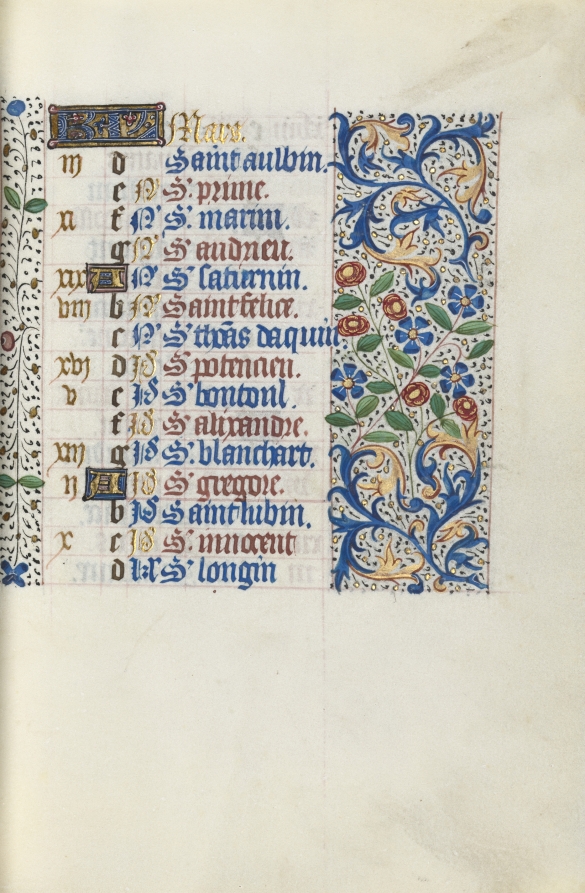 KL Mars.
iii d Saint aulbin.
e N S. prime.
xi f N S. marin.
g N S. audrieu.
xix A N S saturnin.
viii b N Saint felice.
c N S. thoãs daquin
xvi d id S. potencieu.
v e id S. bontoul.
f id S alixandre.
xiii g id S. blanchart.
ii A id S gregore.
b id Saint lubin.
x c id S. innocent
d kl S. longin